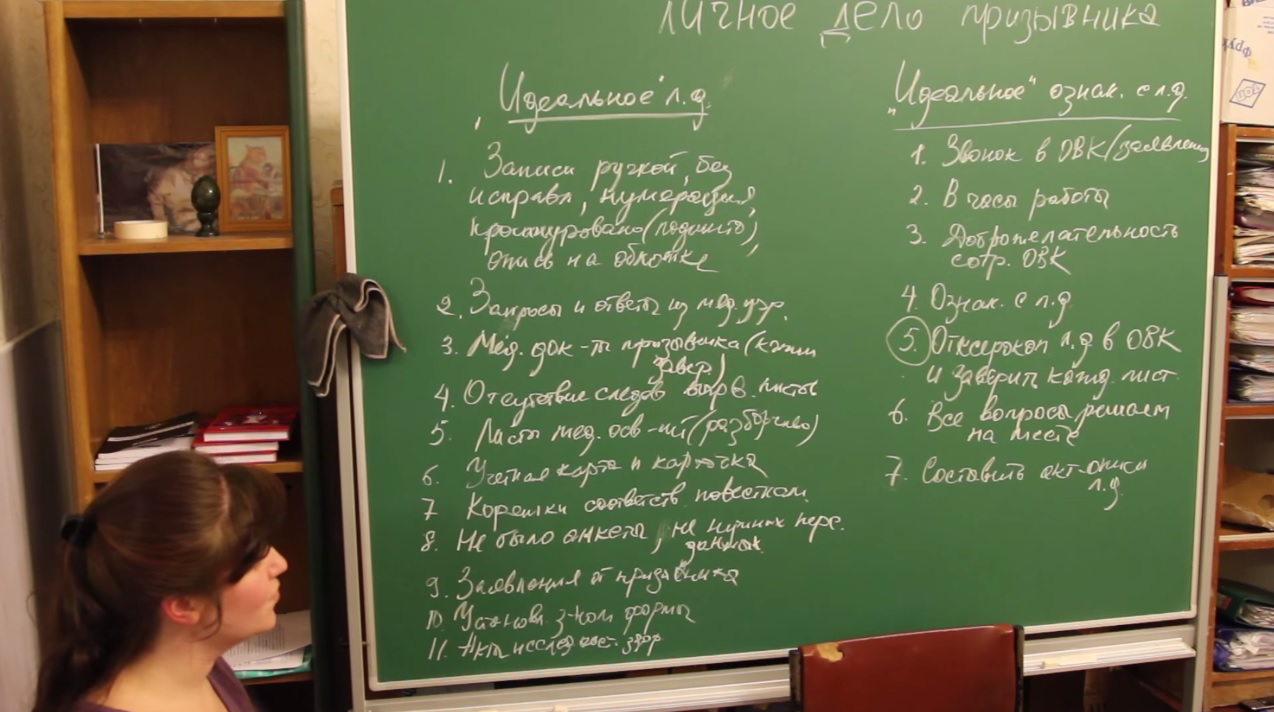 Личное дело призывника
"Идеальное" л.д.
1. Записи ручкой, без
исправл, нумерация,
прошнуровано (подшито),
опись на обложке
2. Запросы и ответы из мед. учр.
3. Мед. док-ты призывника (копии
завер.)
4. Отсутствие следов вырв. листов
5. Листы мед. осв-ий (разборчиво)
6. Учетная карта и карточка
7 Корешки соответств. повесткам
8. Не было анкеты, не нужных перс.
данных
9. Заявления от призывника
10. Установ. з-ном формы
11. Акты исслед. сост. здор.
"Идеальное" ознак. с л.д.
1. Звонок в ОВК (заявление)
2. В часы работы
3. Доброжелательность
сотр. ОВК
4 Ознак. с л.д
5. Отксерокоп л.д в ОВК
и заверить кажд. лист.
6. Все вопросы решаем
на месте
7. Составить акт-описи
л.д.